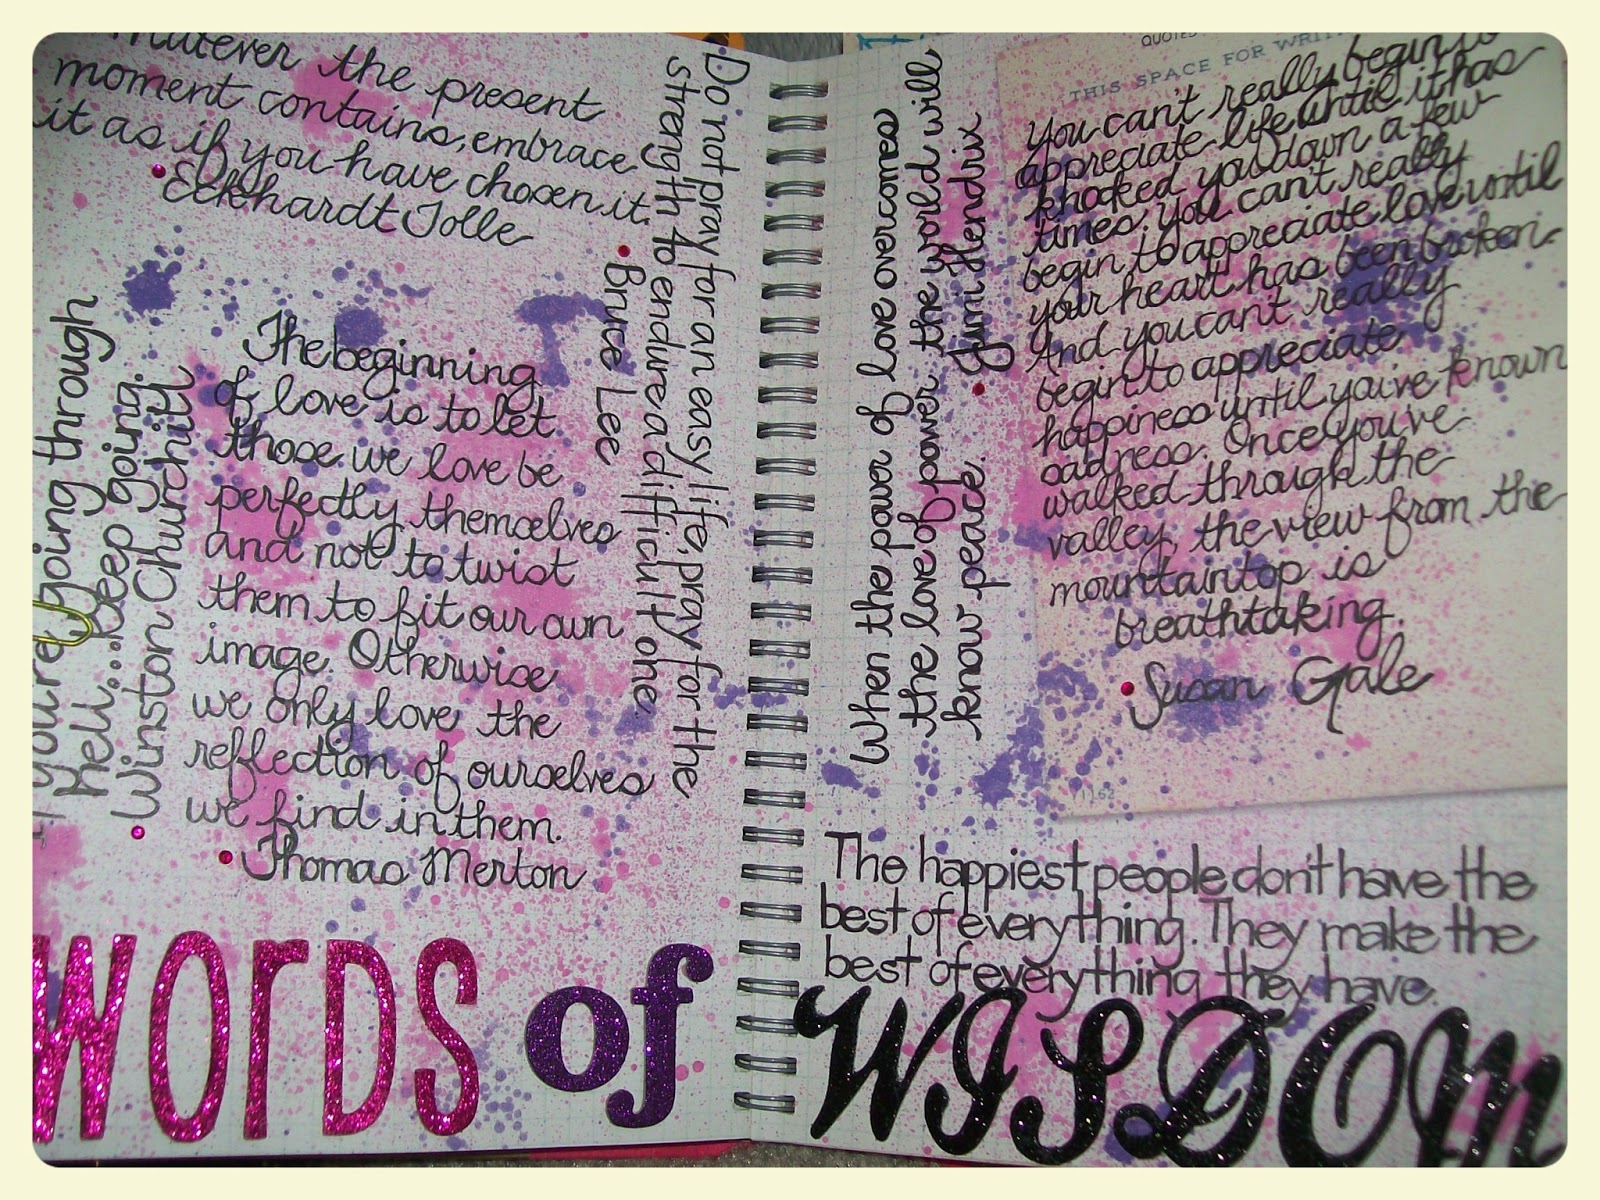 Whatever the present
moment contains, embrace
it as if you have chosen it.
Eckhardt Tolle
Do not pray for an easy life, pray for the
strength to endure a difficult one.
Bruce Lee
If you're going through
hell...keep going.
Winston Churchill
The beginning
of love is to let
those we love be
perfectly themselves
and not to twist
them to fit our own
image. Otherwise
we only love the
reflection of ourselves
we find in them.
Thomas Merton
WORDS of
When the power of love overcomes
the love of power the world will
know peace.
Jimi Hendrix
QUOTES
THIS SPACE FOR WRIT
You can't really begin to
appreciate life until it has
knocked you down a few
times. you can't really
begin to appreciate love until
your heart has been broken.
And you can't really
begin to appreciate
happiness until you've known
sadness. Once you've
walked through the
valley, the view from the
mountaintop is
breathtaking.
Susan Gale
The happiest people don't have the
best of everything. They make the
best of everything they have.
WISDOM